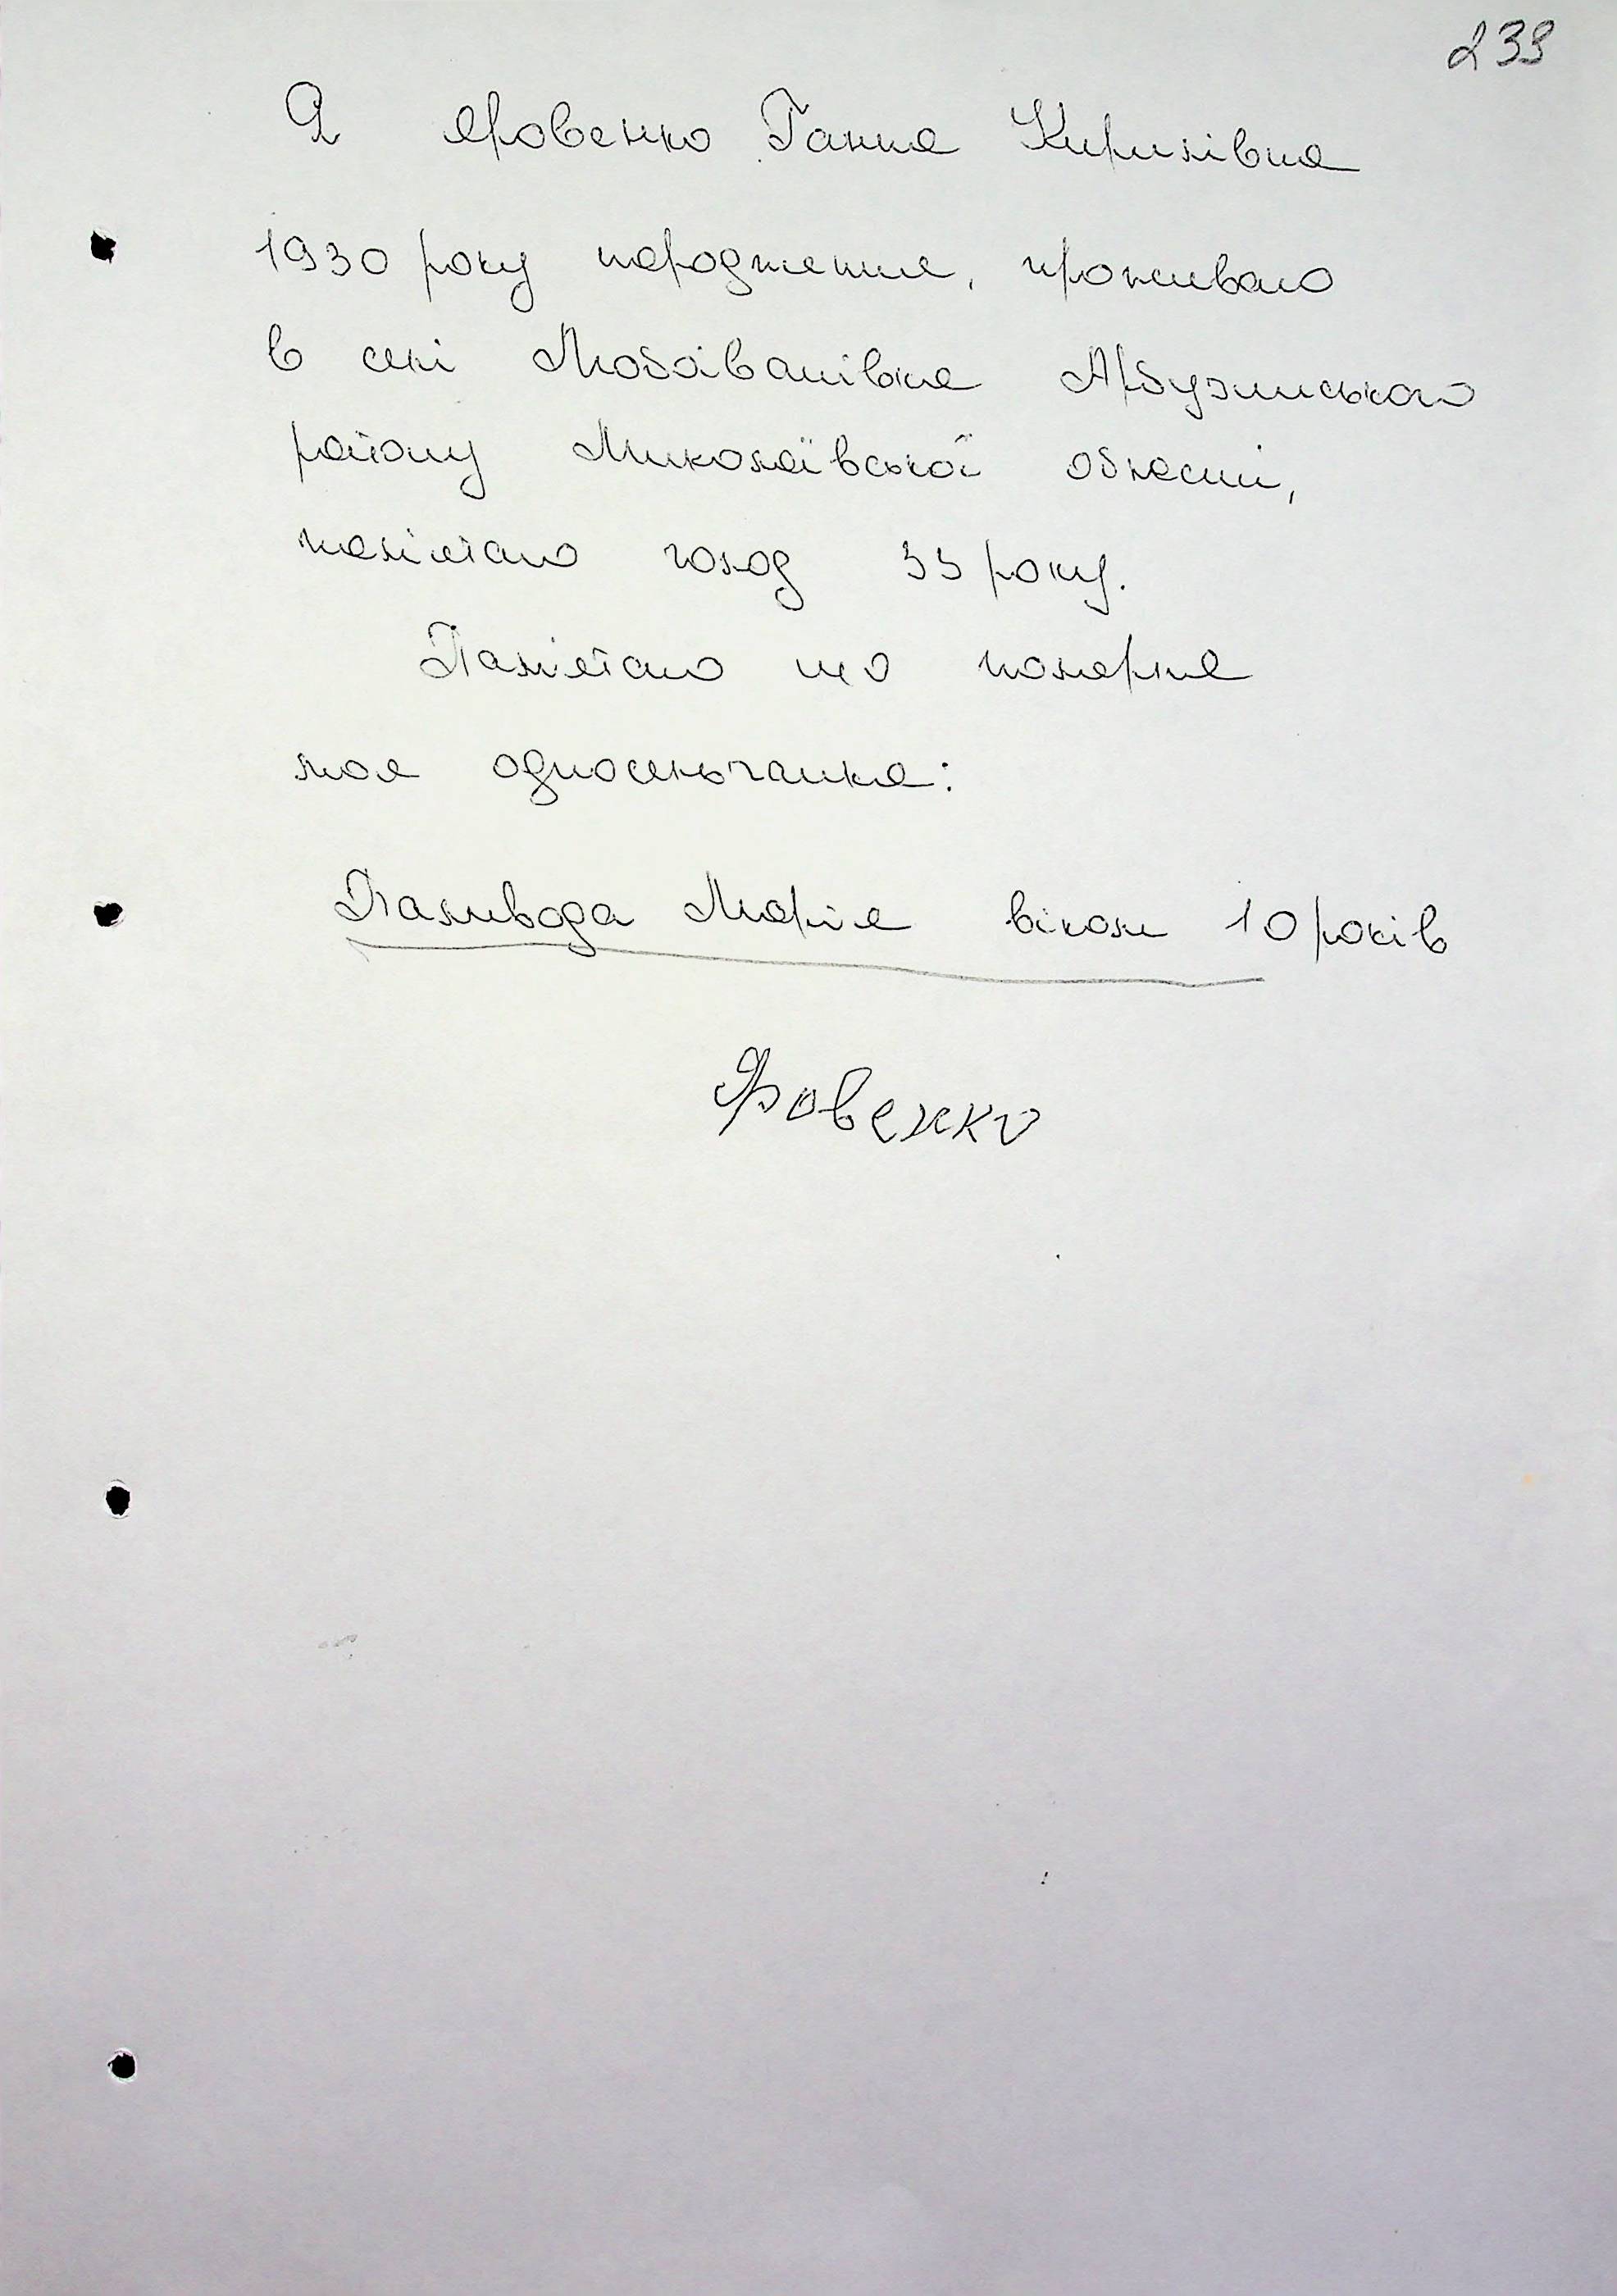 239
Я Яровенко Ганна Кирилівна
1930 року народження, проживаю
в селі Любоіванівка Арбузинського
району Миколаївської області,
памʼятаю голод 33 року.
Памʼятаю що померла
моя односельчанка:
Паливода Марія віком 10 років
Яровенко